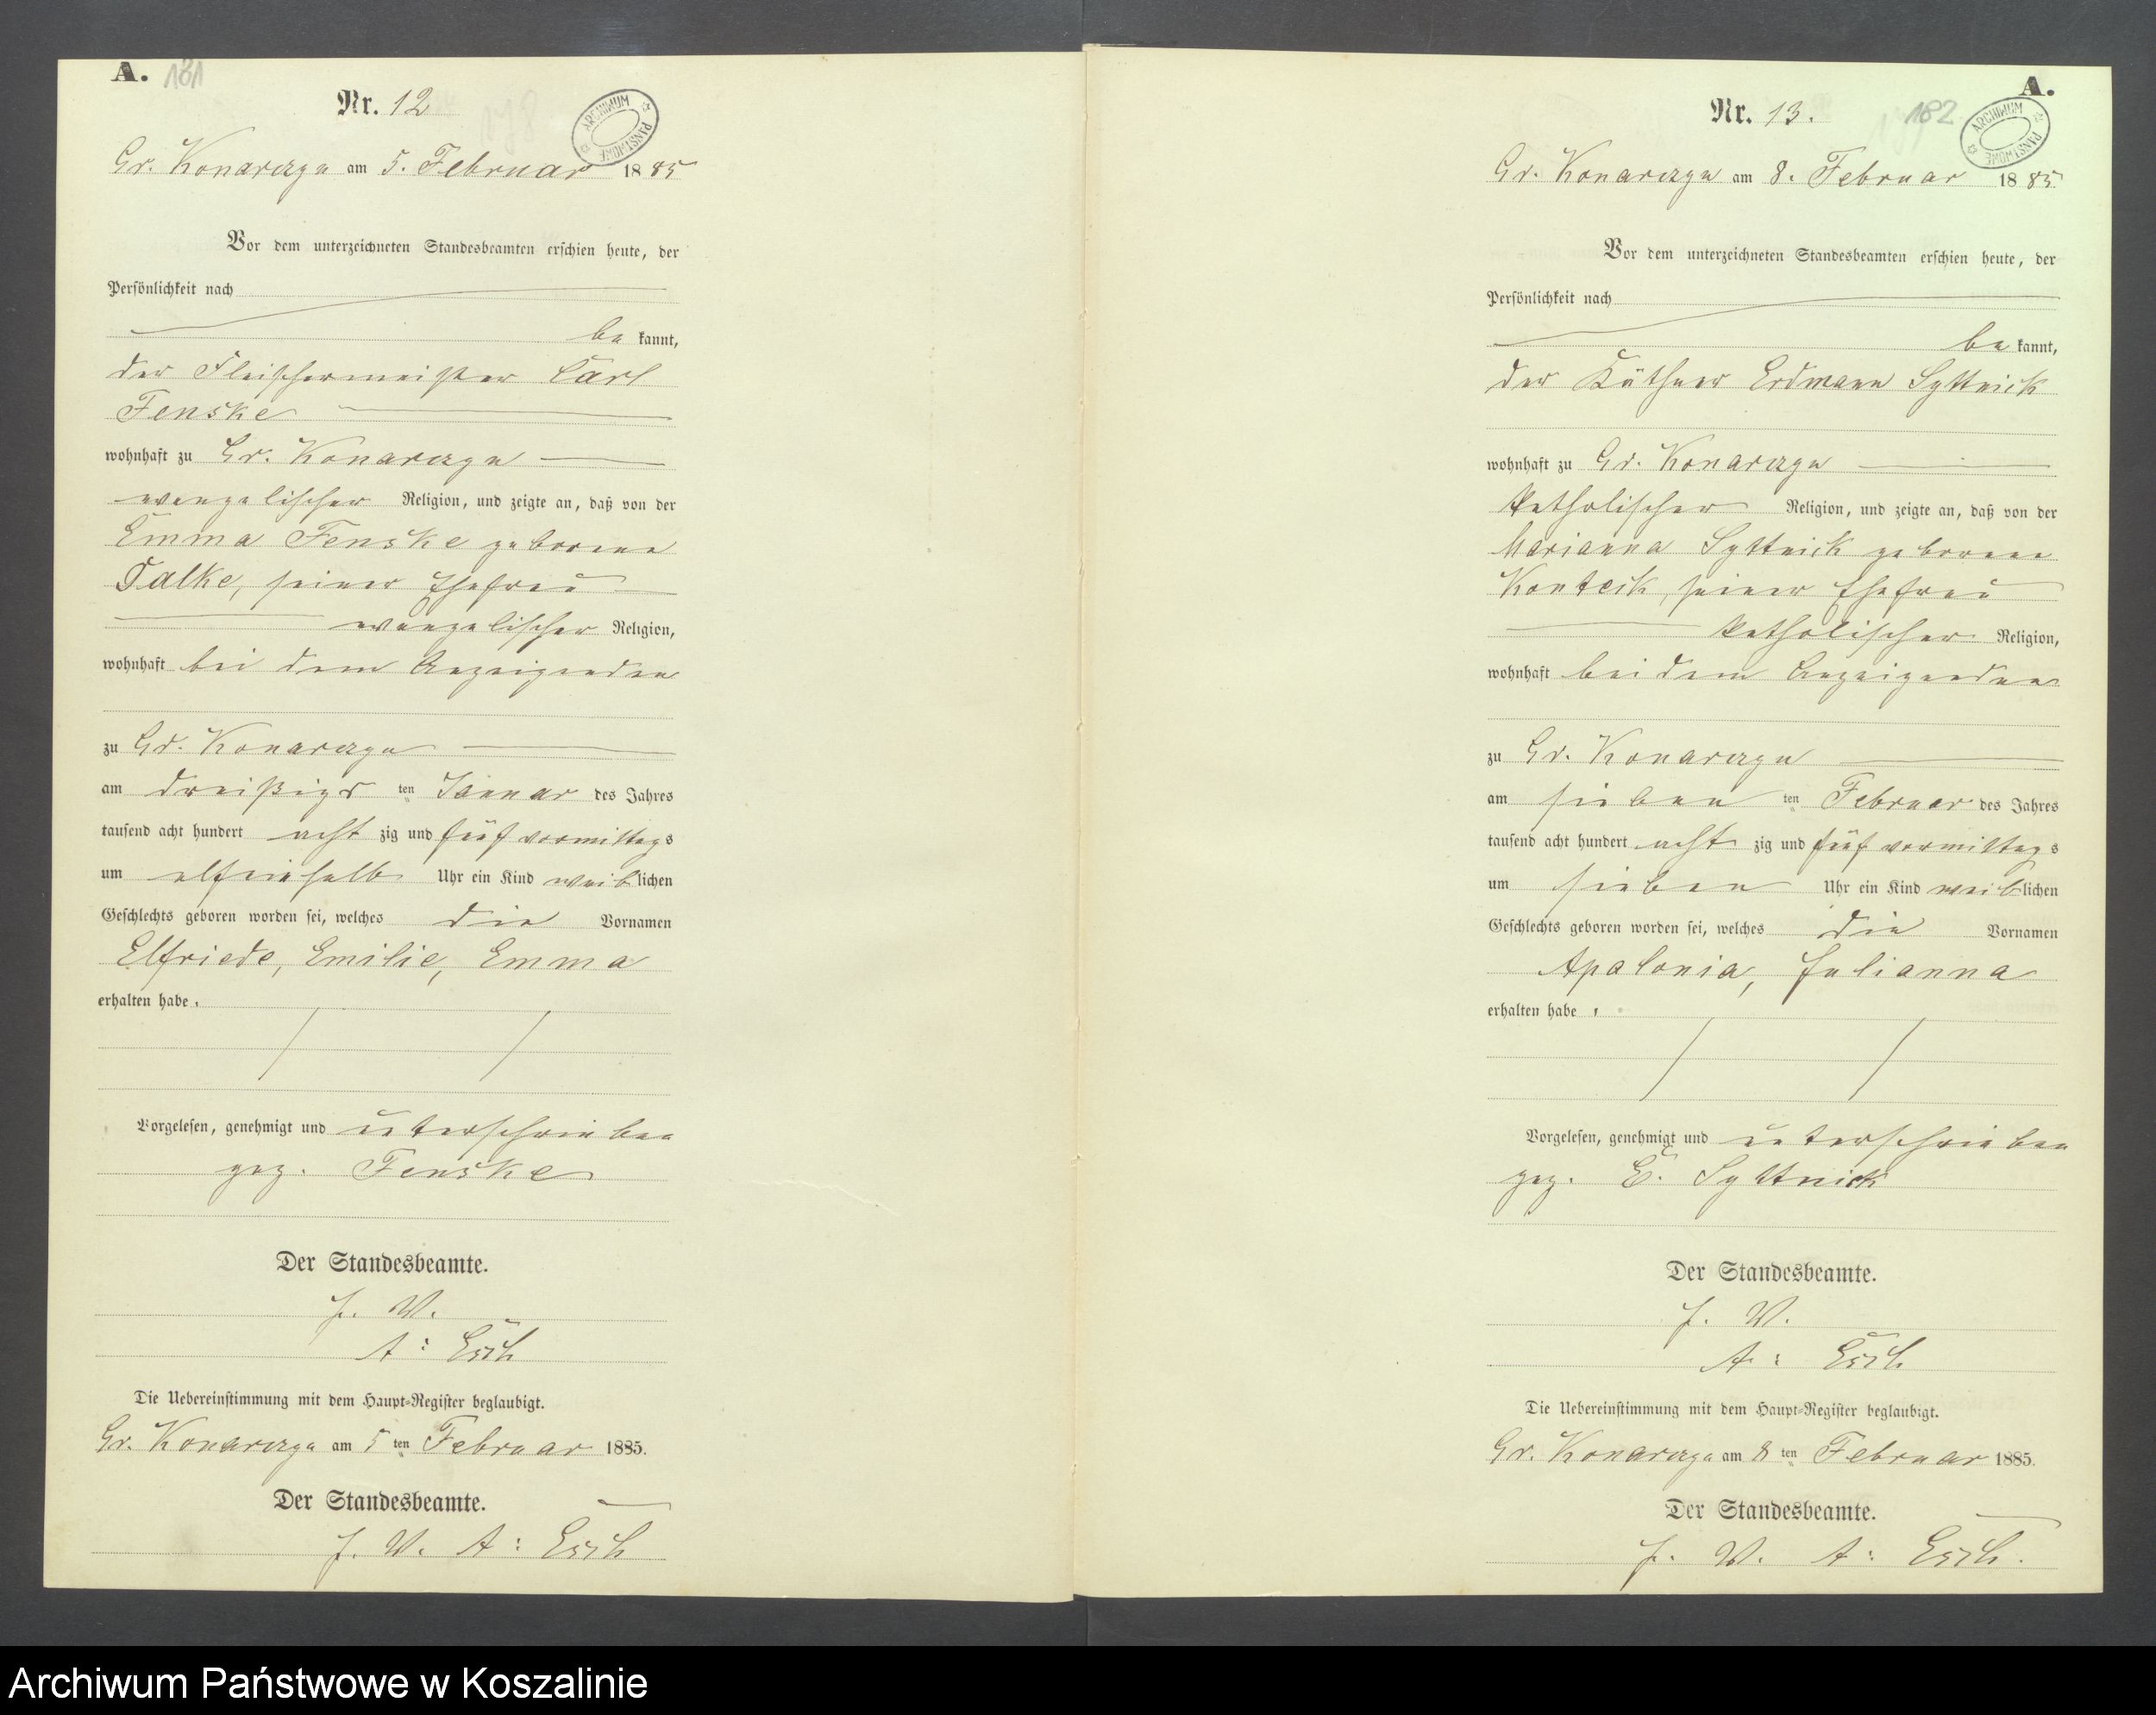 A. 181
Nr. 12
ARCHIWUM PAŃSTWOWE
Gr. Konarczyn am 5. Februar 1885
Vor dem unterzeichneten Standesbeamten erschien heute, der
Persönlichkeit nach
be kannt,
der Fleischermeister Carl
Fenske
wohnhaft zu Gr. Konarczyn
evangelischer Religion, und zeigte an, daß von der
Emma Fenske geborene
Falke, seiner Ehefrau
evangelischer Religion,
wohnhaft bei dem Anzeigenden
zu Gr. Konarczyn
am dreißigs ten Januar des Jahres
tausend acht hundert acht zig und fünf vormittags
um elfeinhalb Uhr ein Kind weiblichen
Geschlechts geboren worden sei, welches die Vornamen
Elfriede, Emilie, Emma
erhalten habe.
Vorgelesen, genehmigt und unterschrieben
gez. Fenske
Der Standesbeamte.
J. V.
A: Esch
Die Uebereinstimmung mit dem Haupt-Register beglaubigt.
Gr. Konarczyn am 5 ten Februar 1885.
Der Standesbeamte.
J. V. A: Esch
A.
Nr. 13. 182
ARCHIWUM PAŃSTWOWE
Gr. Konarczyn am 8. Februar 1885
Vor dem unterzeichneten Standesbeamten erschien heute, der
Persönlichkeit nach
be kannt,
der Käthner Erdmann Syttnick
wohnhaft zu Gr. Konarczyn
katholischer Religion, und zeigte an, daß von der
Marianna Syttnick geborene
Konteck, seiner Ehefrau
katholischer Religion,
wohnhaft bei dem Anzeigenden
zu Gr. Konarczyn
am sieben ten Februar des Jahres
tausend acht hundert acht zig und fünf vormittags
um sieben Uhr ein Kind weiblichen
Geschlechts geboren worden sei, welches die Vornamen
Apalonia, Julianna
erhalten habe.
Vorgelesen, genehmigt und unterschrieben
gez. E. Syttnick
Der Standesbeamte.
J. V.
A: Esch
Die Uebereinstimmung mit dem Haupt-Register beglaubigt.
Gr. Konarczyn am 8 ten Februar 1885.
Der Standesbeamte.
J. V. A: Esch.
Archiwum Państwowe w Koszalinie